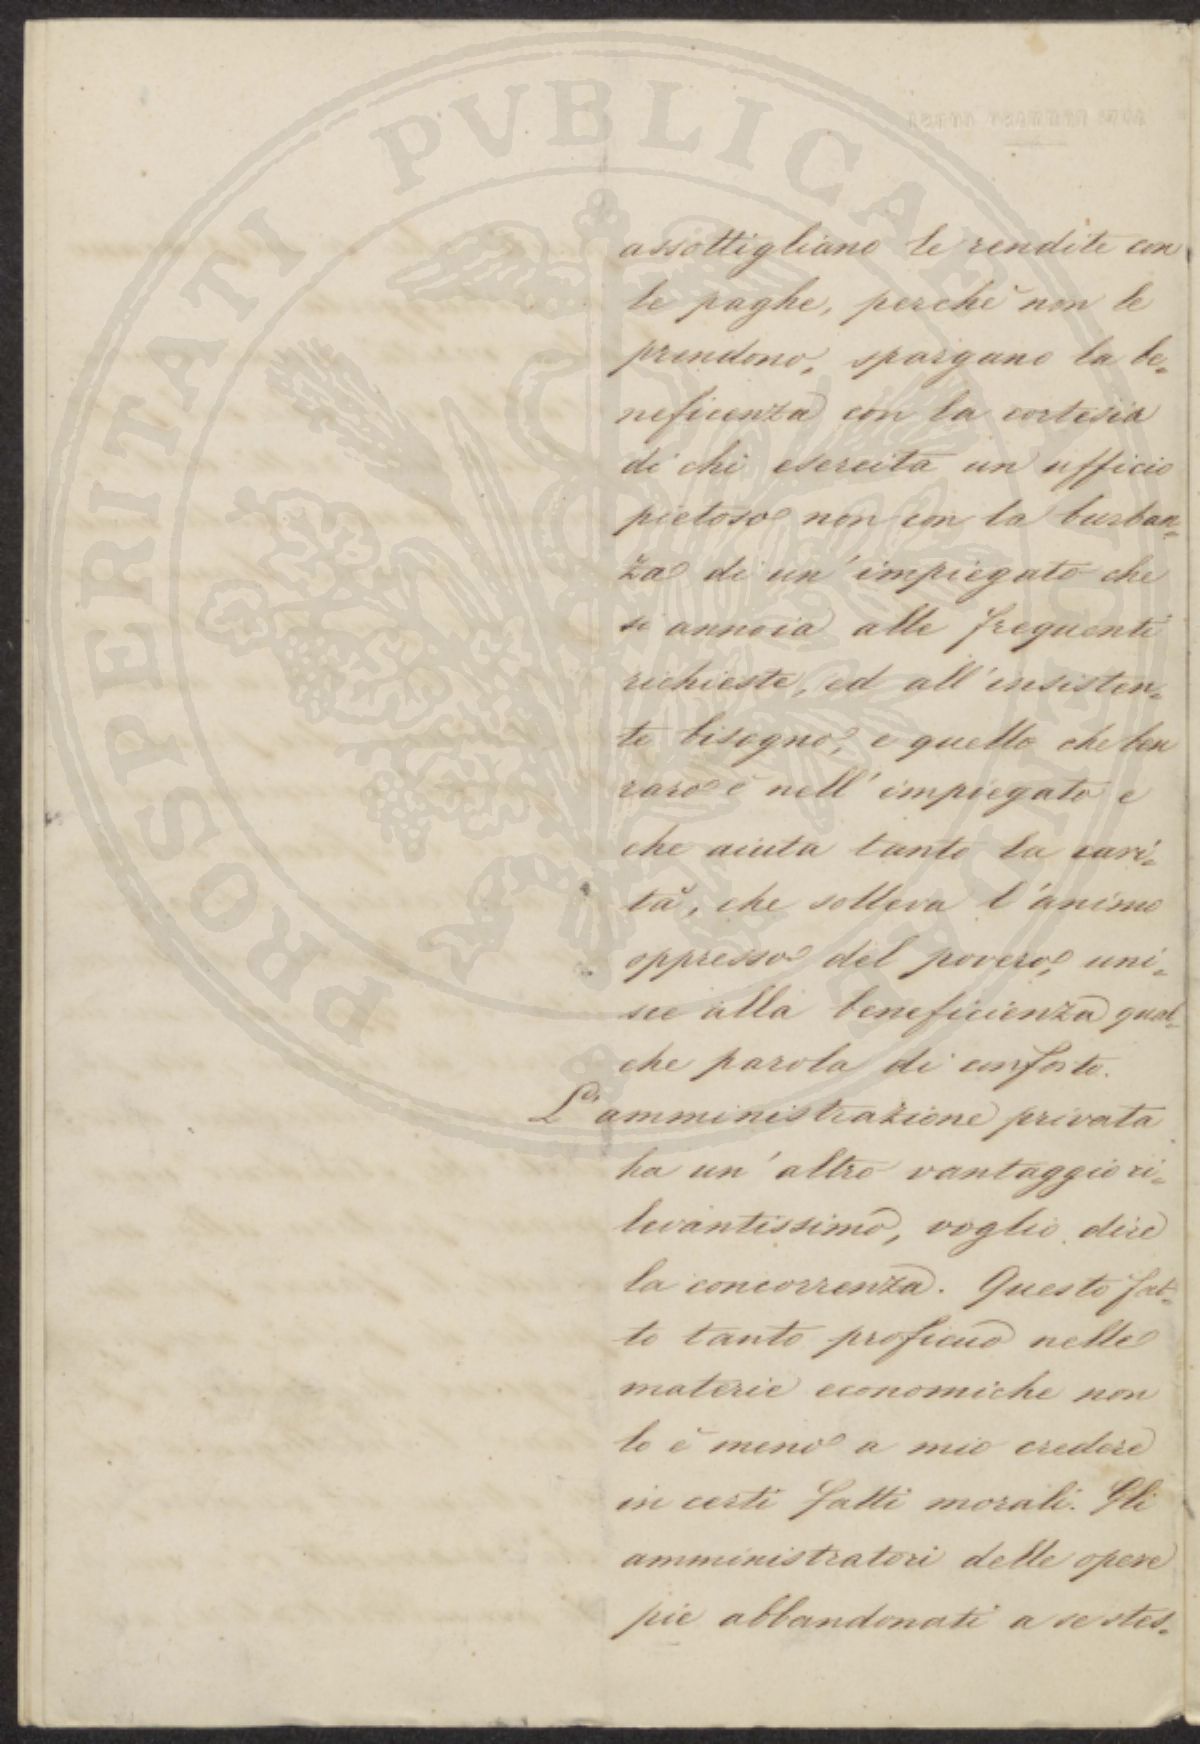 assottigliano le rendite con
le paghe, perchè non le
prendono, spargano la be„
neficenza con la cortesia
di chi esercita un ufficio
pietoso non con la burban„
za di un' impiegato che
si annoia alle frequenti
richieste, ed all' insisten„
te bisogno, e quello che ben
raro è nell' impiegato e
che aiuta tanto la cari„
tà, che solleva l' animo
oppresso del povero, uni„
sce alla beneficienza qual„
che parola di conforto.
L' amministrazione privata
ha un' altro vantaggio ri„
levantissimo, voglio dire
la concorrenza. Questo fat„
to tanto proficuo nelle
materie economiche non
lo è meno a mio credere
in certi fatti morali. Gli
amministratori delle opere
pie abbandonati a se stes„
PROSPERITATI PVBLICAE AVGENDAE